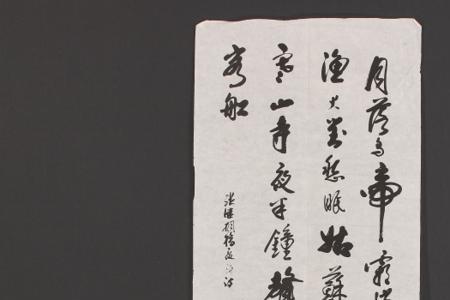 月落烏啼霜
漁火對愁眠姑蘇
寒山寺夜半鐘聲
客船
張繼楓橋夜泊詩